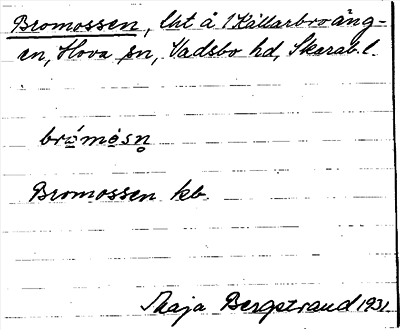 Bromossen, lht å 1 Källarbroäng-
en, Hova sn, Vadsbo hd, Skarab. l.
brómòsn̥
Bromossen kb.
Maja Bergstrand 1931.